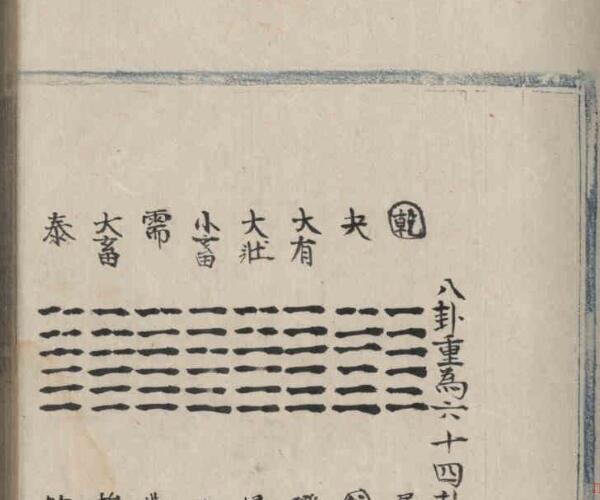 八卦重為六十四
乾
夬
大有
大壯
小畜
需
大畜
泰